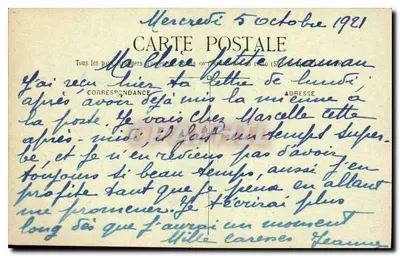 Mercredi 5 octobre 1921
CARTE POSTALE
Tous les
Ma chère petite maman
J'ai reçu hier ta lettre de lundi,
CORRESPONDANCE
ADRESSE
après avoir déjà mis la mienne à
la poste. Je vais chez Marcelle cette
après-midi, il fait un temps super-
be, et je n'en reviens pas d'avoir
toujours si beau temps, aussi j'en
profite tant que je peux en allant
me promener. Je t'écrirai plus
long dès que j'aurai un moment
Mille caresses Jeanne